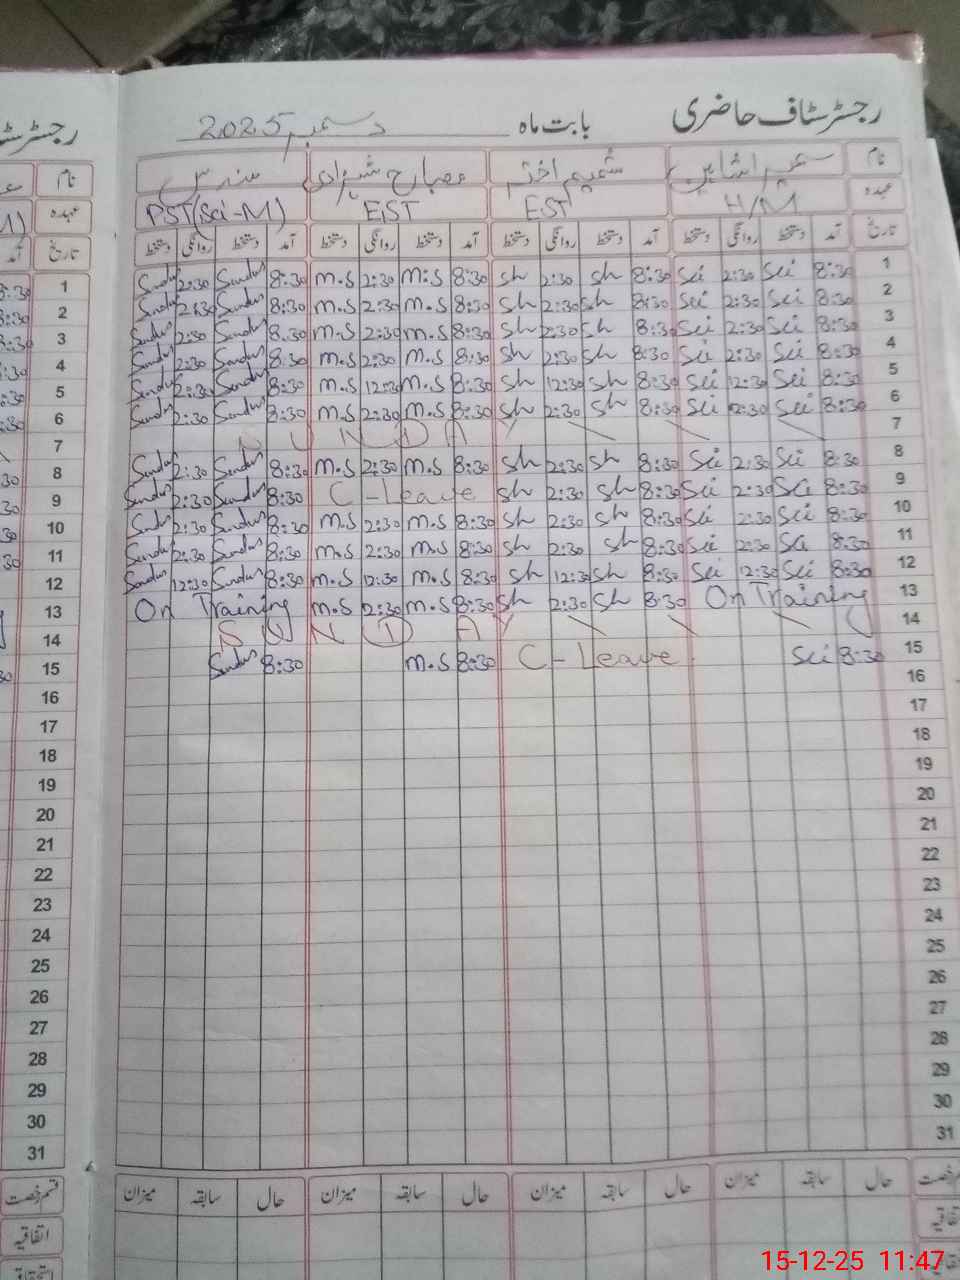 رجسٹر سٹاف حاضری بابت ماہ دسمبر 2025
نام شمیم اختر مصباح شہزادی سندس
عہدہ H/M EST EST PST(Sci-M)
تاریخ آمد دستخط روانگی دستخط آمد دستخط روانگی دستخط آمد دستخط روانگی دستخط آمد دستخط روانگی دستخط
1 8:30 Sei 2:30 Sei 8:30 sh 2:30 sh 8:30 m.s 2:30 m.s 8:30 Sundus 2:30 Sundus 1
2 8:30 Sei 2:30 Sei 8:30 sh 2:30 sh 8:30 m.s 2:30 m.s 8:30 Sundus 2:30 Sundus 2
3 8:30 Sei 2:30 Sei 8:30 sh 2:30 sh 8:30 m.s 2:30 m.s 8:30 Sundus 2:30 Sundus 3
4 8:30 Sei 2:30 Sei 8:30 sh 2:30 sh 8:30 m.s 2:30 m.s 8:30 Sundus 2:30 Sundus 4
5 8:30 Sei 12:30 Sei 8:30 sh 12:30 sh 8:30 m.s 12:30 m.s 8:30 Sundus 12:30 Sundus 5
6 8:30 Sei 2:30 Sei 8:30 sh 2:30 sh 8:30 m.s 2:30 m.s 8:30 Sundus 2:30 Sundus 6
7 SUNDAY 7
8 8:30 Sei 2:30 Sei 8:30 sh 2:30 sh 8:30 m.s 2:30 m.s 8:30 Sundus 2:30 Sundus 8
9 8:30 Sei 2:30 Sei 8:30 sh 2:30 sh C-Leave 8:30 Sundus 2:30 Sundus 9
10 8:30 Sei 2:30 Sei 8:30 sh 2:30 sh 8:30 m.s 2:30 m.s 8:30 Sundus 2:30 Sundus 10
11 8:30 Sei 2:30 Sei 8:30 sh 2:30 sh 8:30 m.s 2:30 m.s 8:30 Sundus 2:30 Sundus 11
12 8:30 Sei 12:30 Sei 8:30 sh 12:30 sh 8:30 m.s 12:30 m.s 8:30 Sundus 12:30 Sundus 12
13 On Training 8:30 sh 2:30 sh 8:30 m.s 2:30 m.s On Training 13
14 SUNDAY 14
15 8:30 Sei C-Leave 8:30 m.s 8:30 Sundus 15
16 16
17 17
18 18
19 19
20 20
21 21
22 22
23 23
24 24
25 25
26 26
27 27
28 28
29 29
30 30
31 31
قسم رخصت حال سابقہ میزان حال سابقہ میزان حال سابقہ میزان حال سابقہ میزان قسم رخصت
اتفاقیہ
15-12-25 11:47